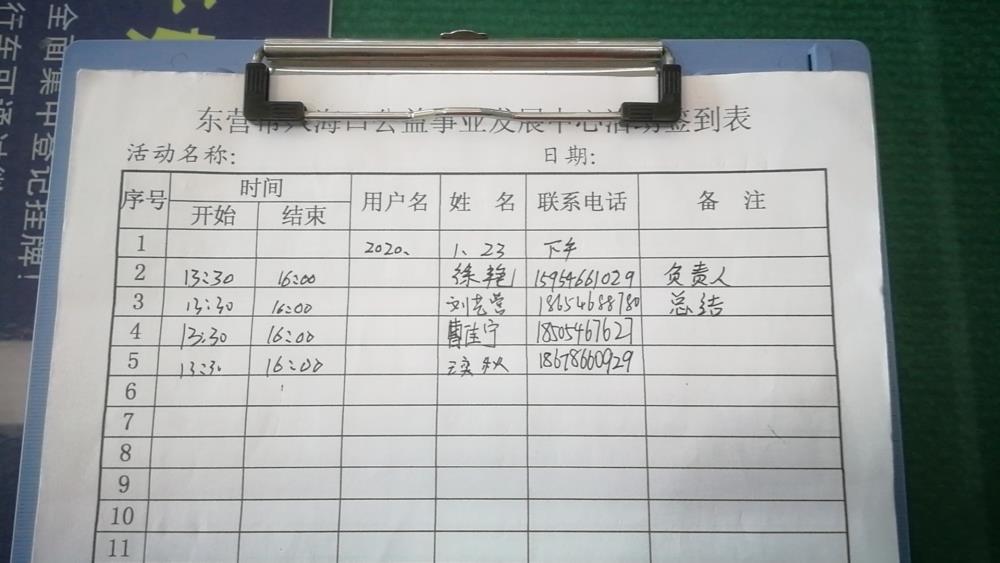 全面集中登记挂牌!
东营市大海口公益事业发展中心活动签到表
活动名称: 日期:
序号 时间 用户名 姓 名 联系电话 备 注
开始 结束
1 2020. 1. 23 下午
2 13:30 16:00 徐艳 15954661029 负责人
3 13:30 16:00 刘艺营 18654688780 总结
4 13:30 16:00 曹佳宁 18505467627
5 13:30 16:00 秋 18678660929
6
7
8
9
10
11